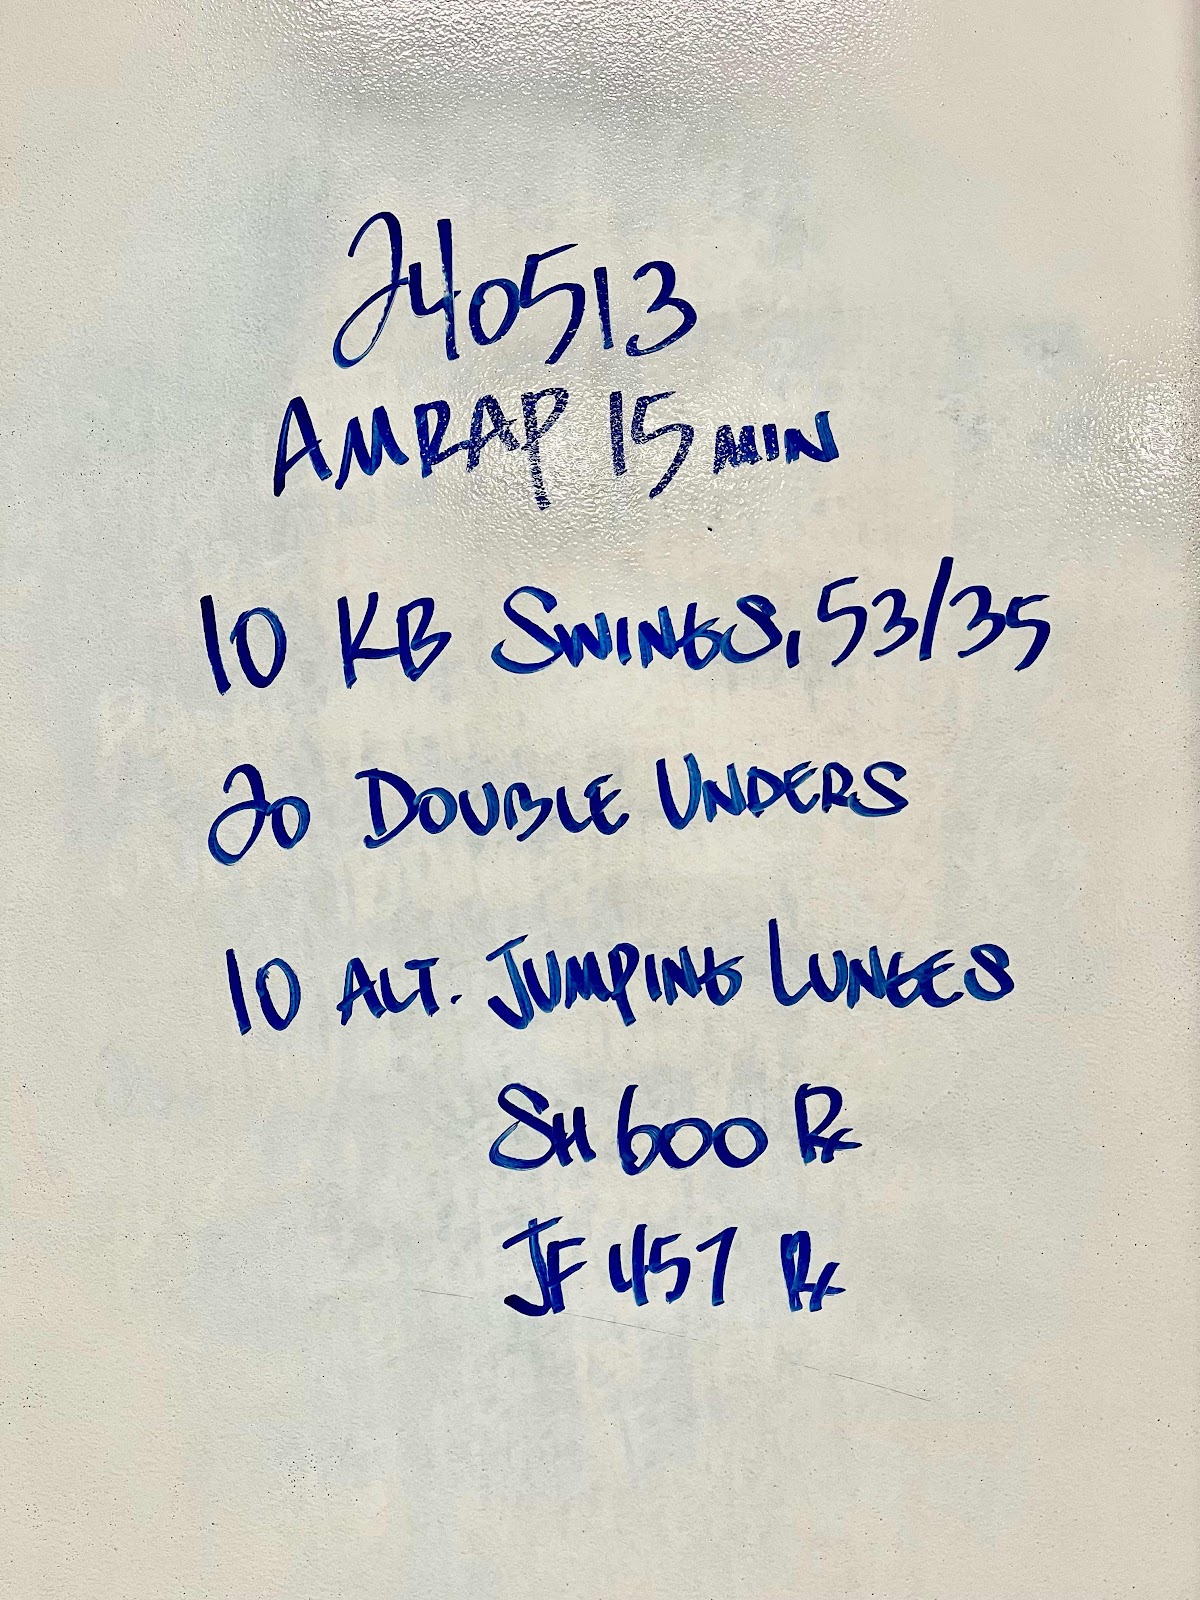 240513
AMRAP 15 MIN
10 KB SWINGS, 53/35
20 DOUBLE UNDERS
10 ALT. JUMPING LUNGES
SH 600 Rx
JF 457 Rx